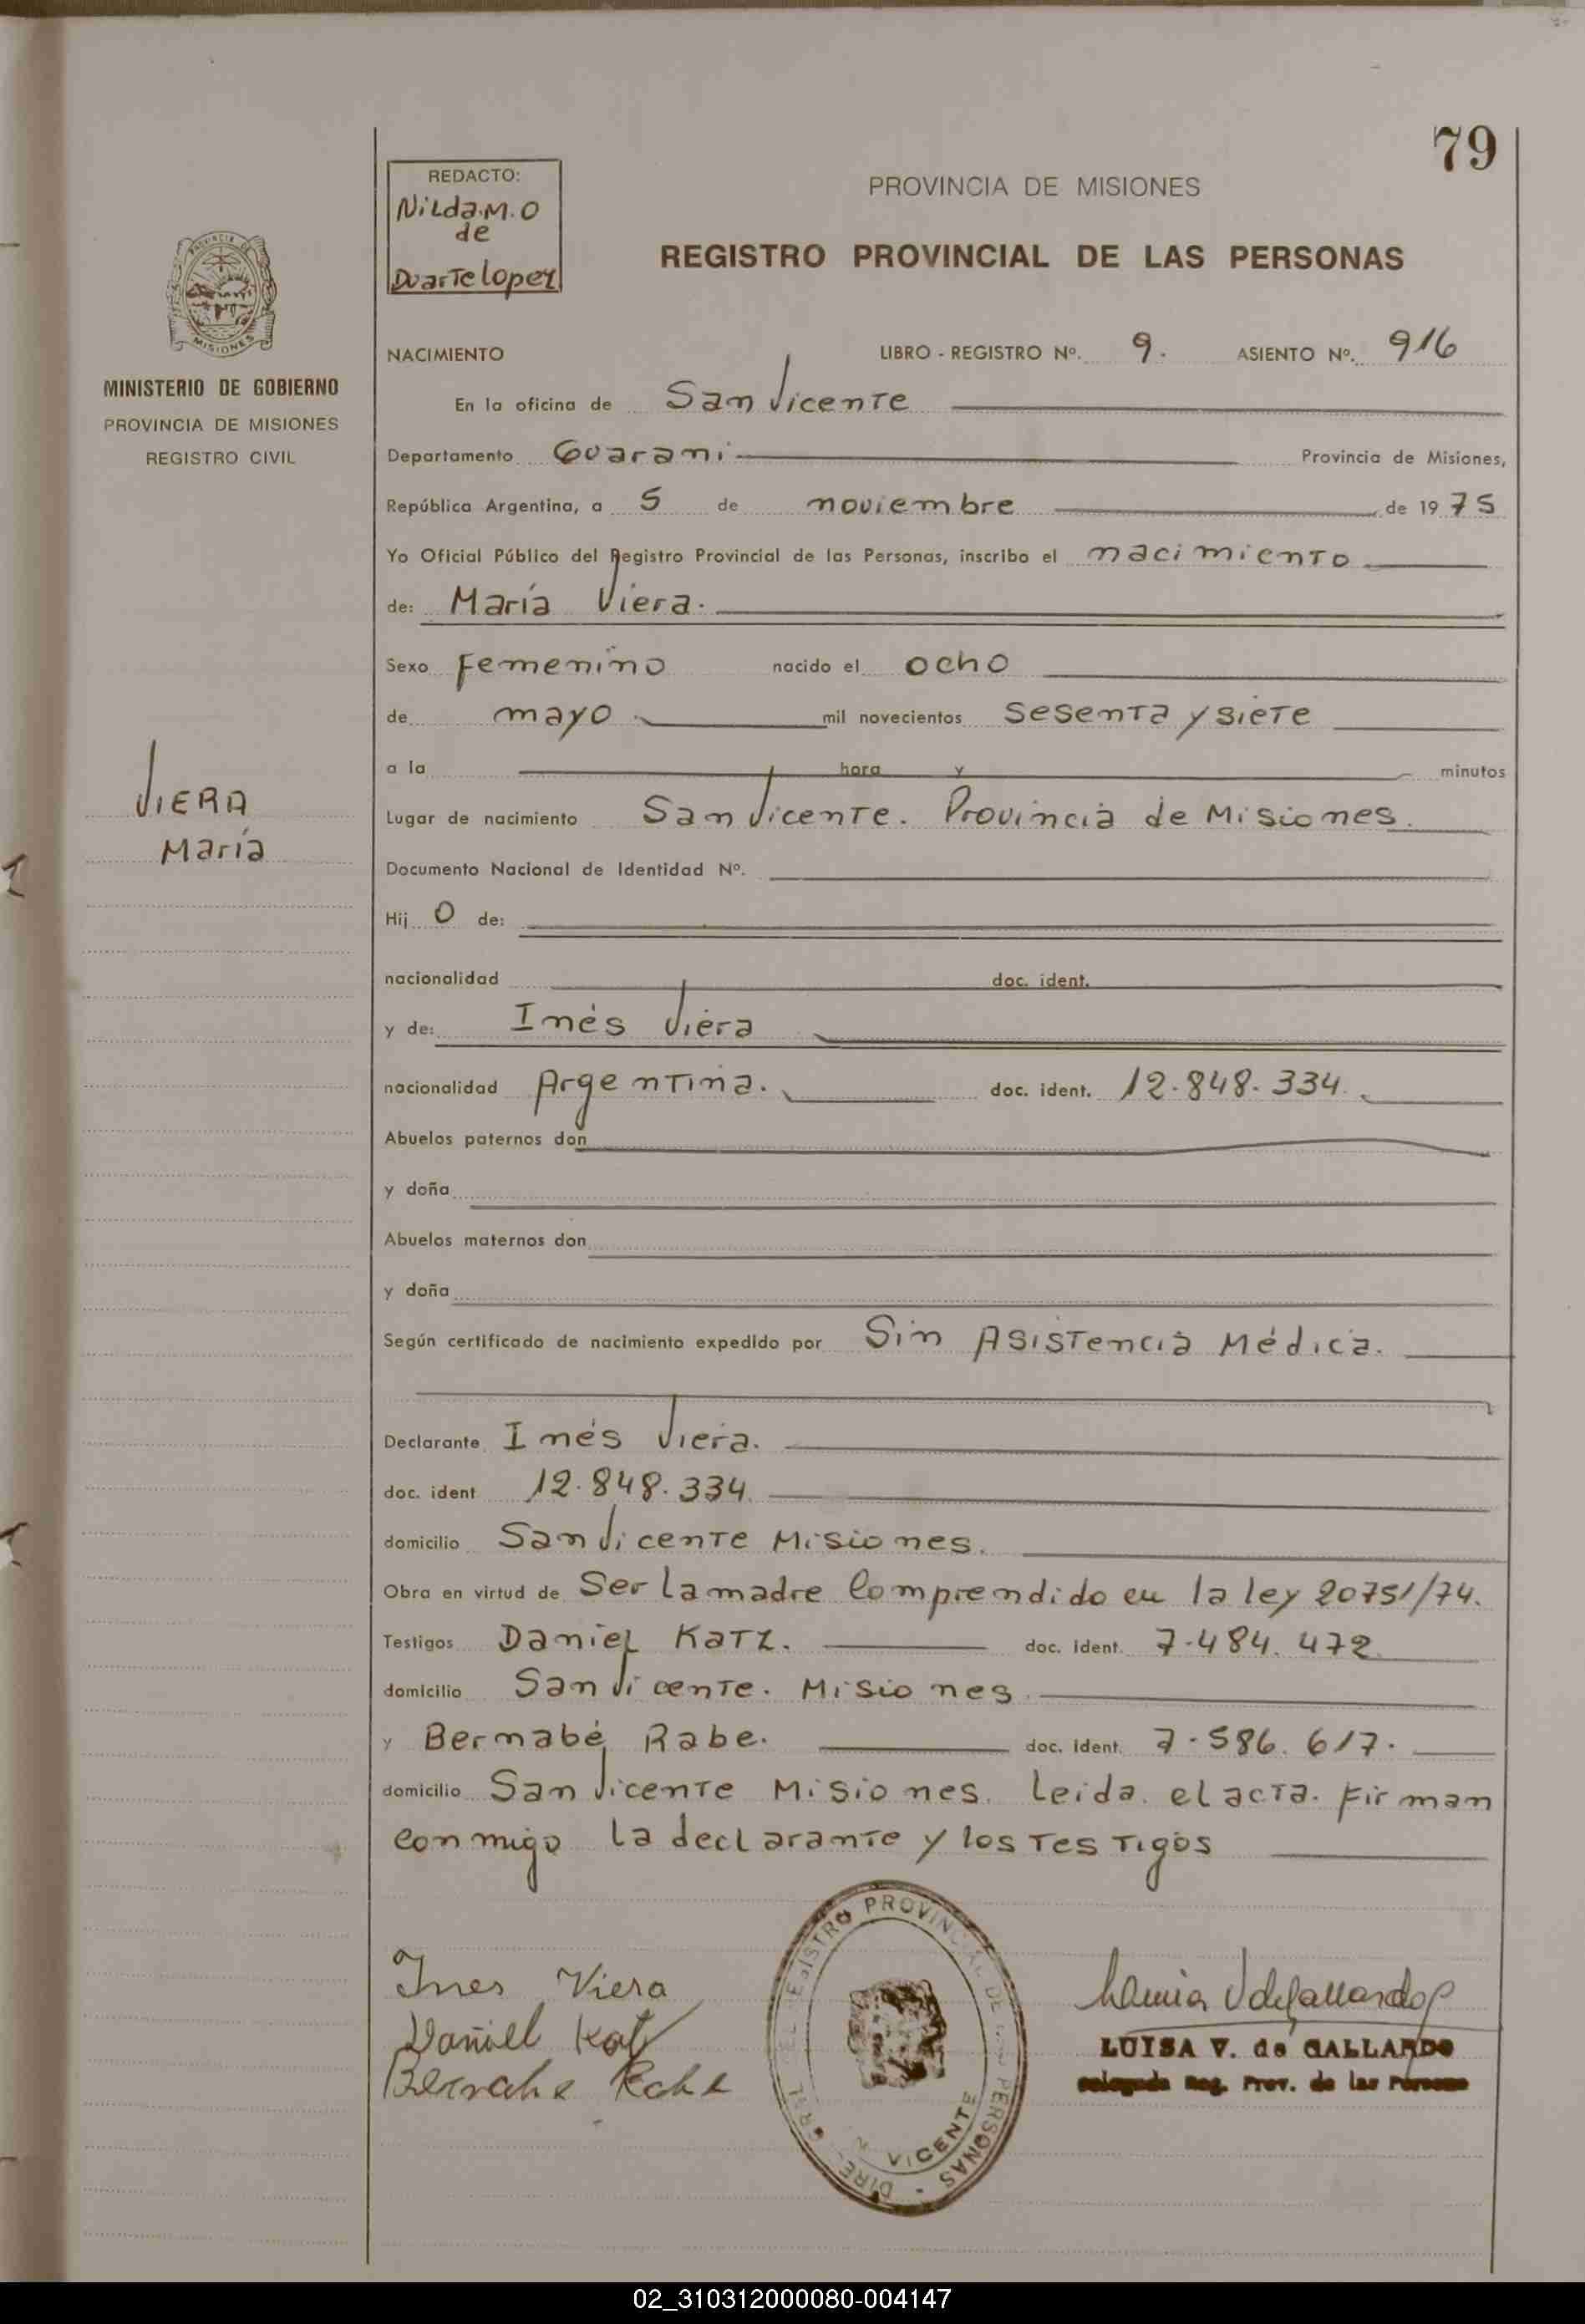 79
REDACTO:
Nilda.M.O
de
Duarte lopez
PROVINCIA DE MISIONES
REGISTRO PROVINCIAL DE LAS PERSONAS
PROVINCIA DE
MISIONES
MINISTERIO DE GOBIERNO
PROVINCIA DE MISIONES
REGISTRO CIVIL
VIERA
María
NACIMIENTO LIBRO - REGISTRO Nº. 9. ASIENTO Nº. 916
En la oficina de San Vicente
Departamento Guarani Provincia de Misiones,
República Argentina, a 5 de noviembre de 1975
Yo Oficial Público del Registro Provincial de las Personas, inscribo el nacimiento
de: María Viera.
Sexo Femenino nacido el ocho
de mayo mil novecientos sesenta y siete
a la hora y minutos
Lugar de nacimiento San Vicente. Provincia de Misiones.
Documento Nacional de Identidad Nº.
Hij o de:
nacionalidad doc. ident.
y de: Inés Viera
nacionalidad Argentina. doc. ident. 12.848.334.
Abuelos paternos don
y doña
Abuelos maternos don
y doña
Según certificado de nacimiento expedido por Sin Asistencia Médica.
Declarante Inés Viera.
doc. ident 12.848.334.
domicilio San Vicente Misiones.
Obra en virtud de Ser la madre Comprendido en la ley 20751/74.
Testigos Daniel Katz. doc. ident. 7.484.472
domicilio San Vicente. Misiones
y Bernabé Rabe. doc. ident. 7.586.617.
domicilio San Vicente Misiones. Leida el acta. Firman
conmigo la declarante y los Testigos
Ines Viera
Daniel Katz
Bernabe Rabe
DIREC. GRAL. DEL REGISTRO PROVINCIAL DE LAS PERSONAS
VICENTE
LUISA V. de GALLARDO
Delegada Reg. Prov. de las Personas
02_310312000080-004147